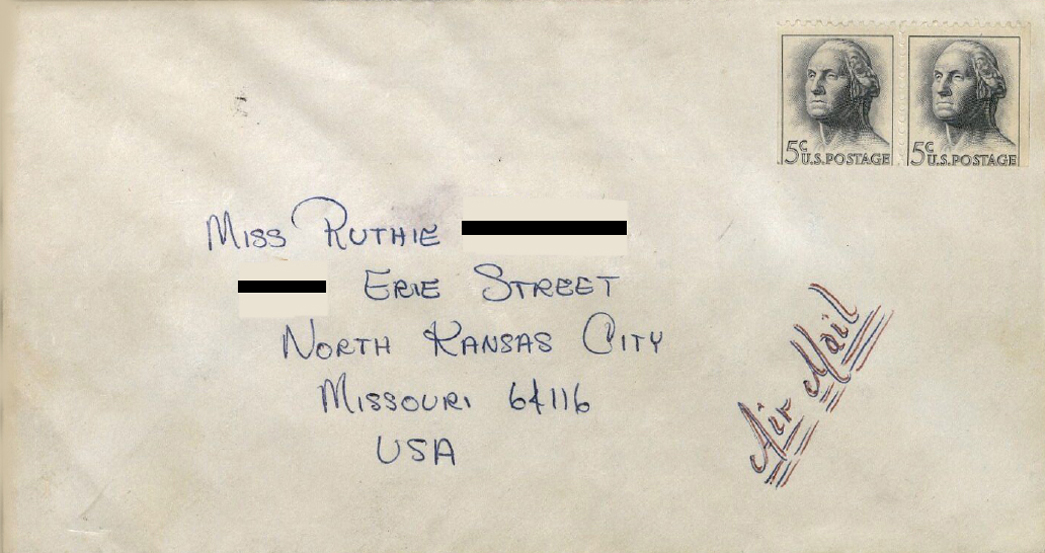 5c U.S. POSTAGE 5c U.S. POSTAGE
Miss Ruthie
Erie Street
North Kansas City
Missouri 64116
USA
Air Mail